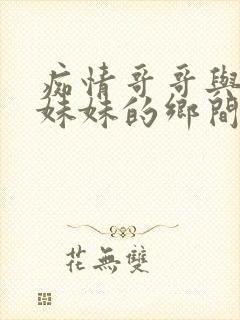 痴情哥哥與
妹妹的鄉間
花無雙